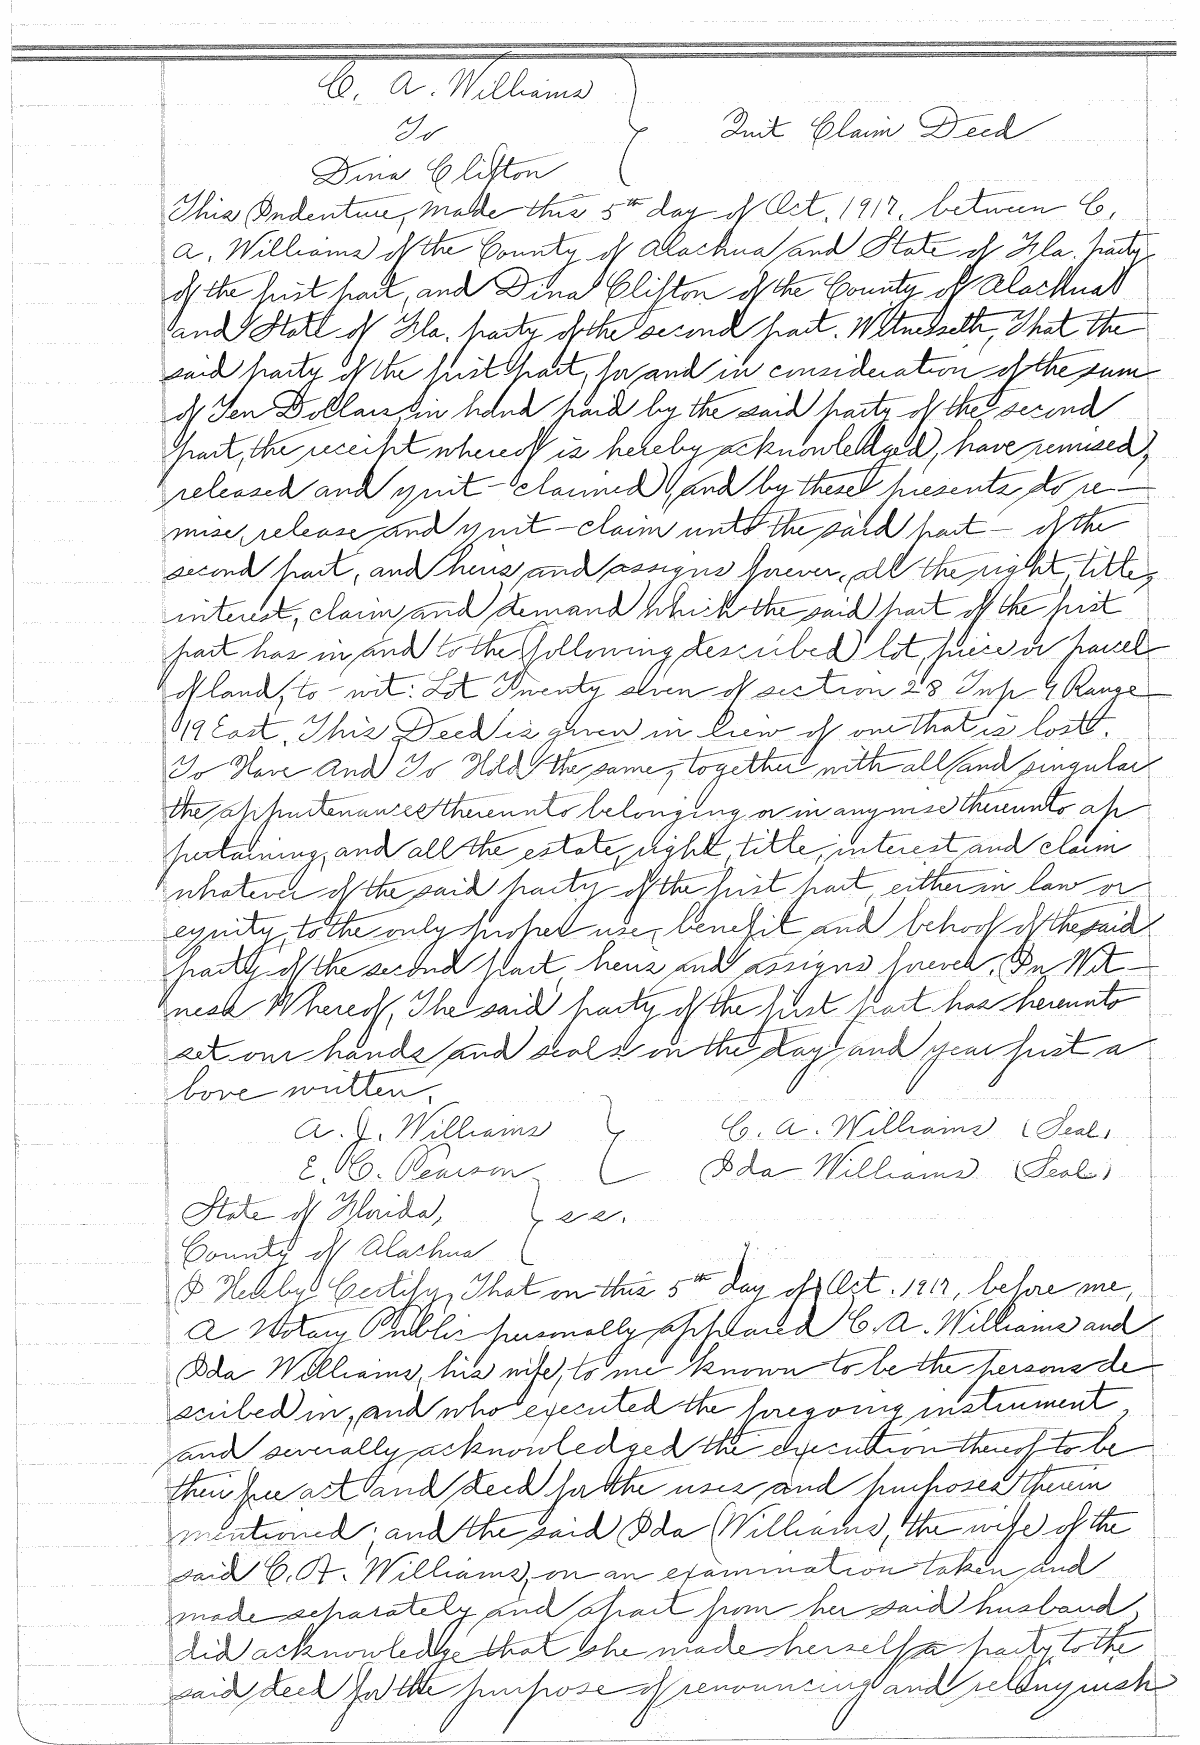 C. A. Williams
To
Quit Claim Deed
Dina Clifton
This Indenture, made this 5th day of Oct. 1917, between C.
A. Williams of the County of Alachua and State of Fla. party
of the first part, and Dina Clifton of the County of Alachua
and State of Fla. party of the second part. Witnesseth, That the
said party of the first part, for and in consideration of the sum
of Ten Dollars, in hand paid by the said party of the second
part, the receipt whereof is hereby acknowledged, have remised,
released and quit-claimed, and by these presents do re-
mise, release and quit-claim unto the said part- of the
second part, and heirs and assigns forever, all the right, title,
interest, claim and demand which the said part of the first
part has in and to the following described lot, piece or parcel
of land, to-wit: Lot Twenty seven of section 28 Twp 9 Range
19 East. This Deed is given in lieu of one that is lost.
To Have And To Hold the same, together with all and singular
the appurtenances thereunto belonging or in anywise thereunto ap
pertaining, and all the estate, right, title, interest and claim
whatever of the said party of the first part, either in law or
equity, to the only proper use, benefit and behoof of the said
party of the second part, heirs and assigns forever. In Wit-
ness Whereof, The said party of the first part has hereunto
set our hands and seals on the day and year first a
bove written.
A. J. Williams C. A. Williams (Seal)
E. C. Pearson Ida Williams (Seal)
State of Florida, } ss.
County of Alachua
I Hereby Certify, That on this 5th day of Oct. 1917, before me,
A Notary Public personally appeared C. A. Williams and
Ida Williams, his wife, to me known to be the persons de
scribed in, and who executed the foregoing instrument,
and severally acknowledged the execution thereof to be
their free act and deed for the uses and purposes therein
mentioned; and the said Ida Williams, the wife of the
said C. A. Williams, on an examination taken and
made separately and apart from her said husband,
did acknowledge that she made herself a party to the
said deed for the purpose of renouncing and relinquish